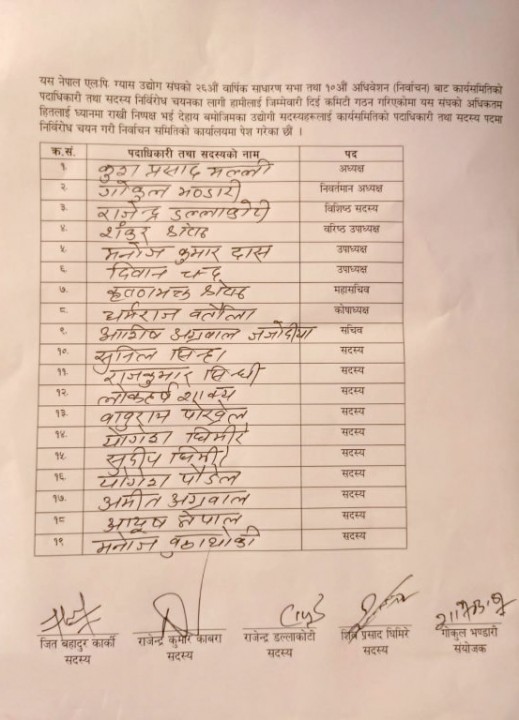 यस नेपाल एल.पि. ग्यास उद्योग संघको २६औं वार्षिक साधारण सभा तथा १०औं अधिवेशन (निर्वाचन) बाट कार्यसमितिको
पदाधिकारी तथा सदस्य निर्विरोध चयनका लागी हामीलाई जिम्मेवारी दिई कमिटी गठन गरिएकोमा यस संघको अधिकतम
हितलाई ध्यानमा राखी निष्पक्ष भई देहाय बमोजिमका उद्योगी सदस्यहरुलाई कार्यसमितिको पदाधिकारी तथा सदस्य पदमा
निर्विरोध चयन गरी निर्वाचन समितिको कार्यालयमा पेश गरेका छौं ।
क.सं. पदाधिकारी तथा सदस्यको नाम पद
१. कुश प्रसाद मल्ली अध्यक्ष
२. गोकुल भण्डारी निवर्तमान अध्यक्ष
३. राजेन्द्र डल्लाकोटी विशिष्ठ सदस्य
४. शंकर श्रेष्ठ वरिष्ठ उपाध्यक्ष
५. मनोज कुमार दास उपाध्यक्ष
६. दिवान चन्द उपाध्यक्ष
७. श्रेष्ठ महासचिव
८. धर्मराज वतौला कोषाध्यक्ष
९. आशिष अग्रवाल जजोदीया सचिव
१०. सुनिल सिन्हा सदस्य
११. राजकुमार सिन्धी सदस्य
१२. लोकहर्ष शाक्य सदस्य
१३. वावुराम पोखेल सदस्य
१४. योगेश घिमीरे सदस्य
१५. सुदीप घिमीरे सदस्य
१६. योगेश पौडेल सदस्य
१७. अमीत अग्रवाल सदस्य
१८. आयूष नेपाल सदस्य
१९. मनोज वुढाथोकी सदस्य
जित बहादुर कार्की राजेन्द्र कुमार काबरा राजेन्द्र डल्लाकोटी शिव प्रसाद घिमिरे गोकुल भण्डारी
सदस्य सदस्य सदस्य सदस्य संयोजक